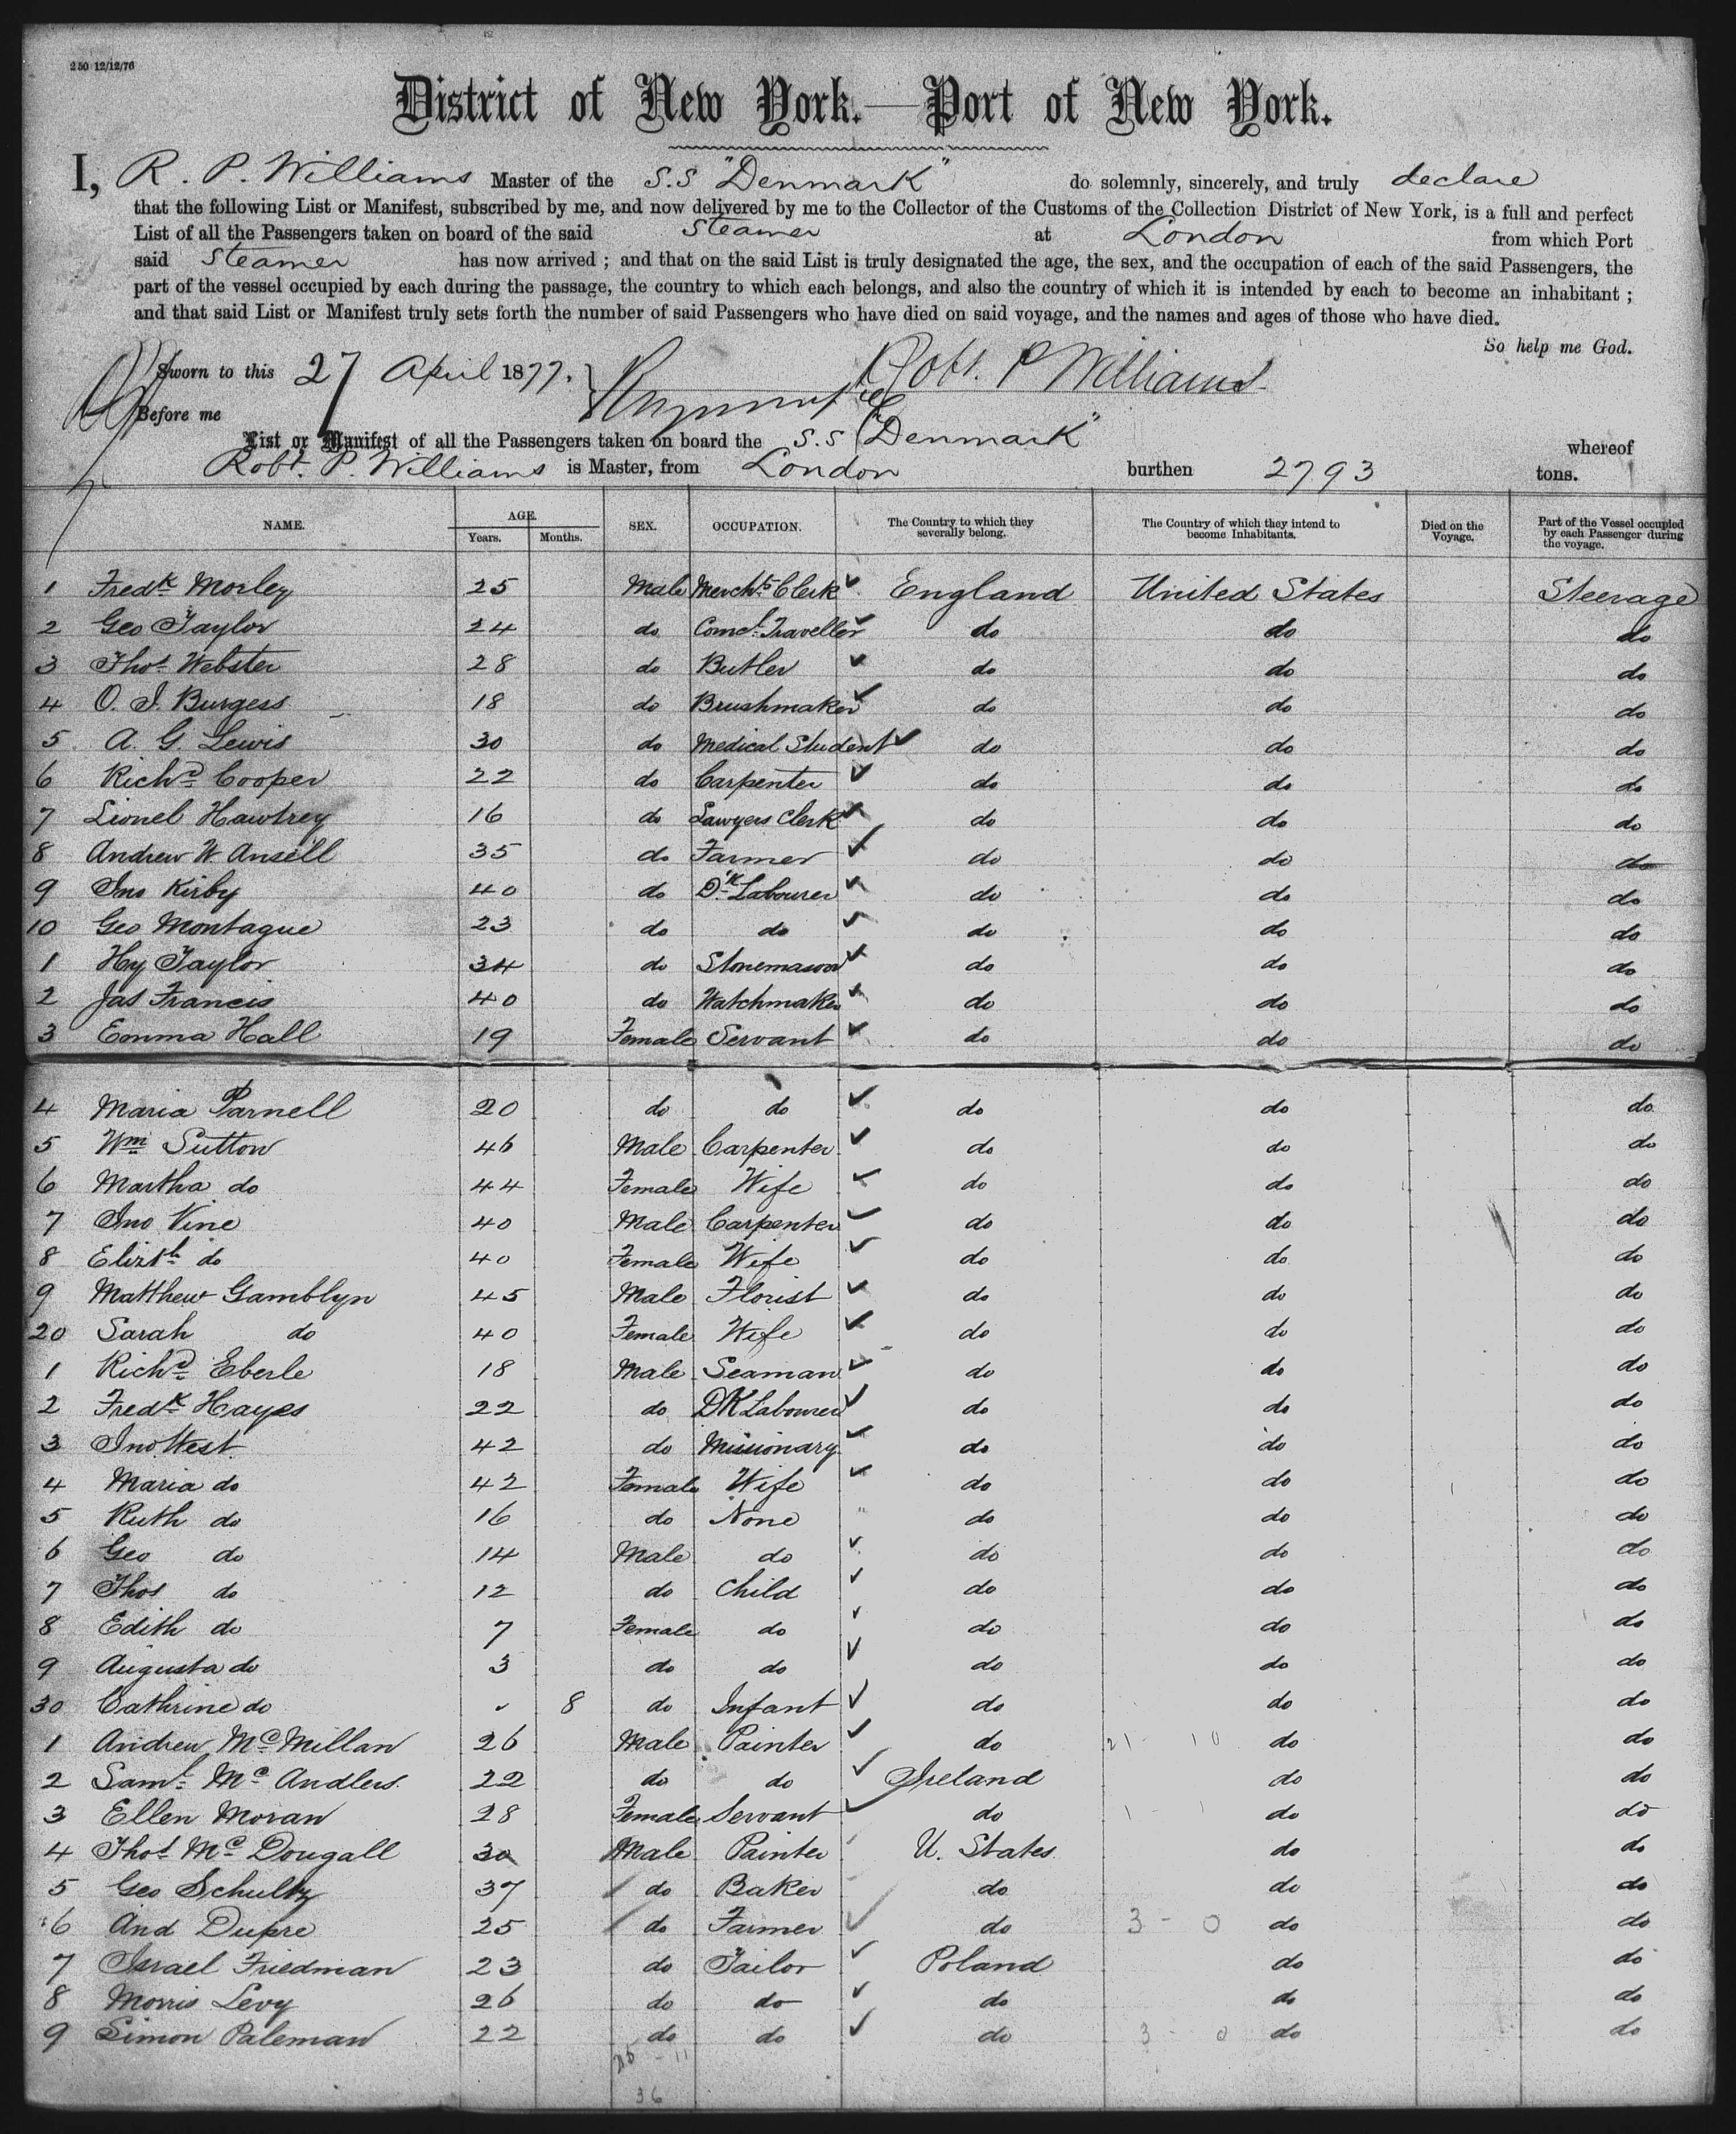 250 12/12/76
District of New York.—Port of New York.
I, R. P. Williams Master of the S.S "Denmark" do solemnly, sincerely, and truly declare
that the following List or Manifest, subscribed by me, and now delivered by me to the Collector of the Customs of the Collection District of New York, is a full and perfect
List of all the Passengers taken on board of the said Steamer at London from which Port
said Steamer has now arrived ; and that on the said List is truly designated the age, the sex, and the occupation of each of the said Passengers, the
part of the vessel occupied by each during the passage, the country to which each belongs, and also the country of which it is intended by each to become an inhabitant ;
and that said List or Manifest truly sets forth the number of said Passengers who have died on said voyage, and the names and ages of those who have died.
So help me God.
Sworn to this 27 April 1877. Robt. P Williams
Before me
List or Manifest of all the Passengers taken on board the S.S "Denmark" whereof
Robt. P. Williams is Master, from London burthen 2793 tons.
NAME. AGE. Years. Months. SEX. OCCUPATION. The Country to which they severally belong. The Country of which they intend to become Inhabitants. Died on the Voyage. Part of the Vessel occupied by each Passenger during the voyage.
1 Fredk Morley 25 Male Mercht's Clerk England United States Steerage
2 Geo Taylor 24 do Comcl Traveller do do do
3 Thos Webster 28 do Butler do do do
4 O. I. Burgess 18 do Brushmaker do do do
5 A. G. Lewis 30 do Medical Student do do do
6 Richd Cooper 22 do Carpenter do do do
7 Lionel Hawtrey 16 do Lawyers Clerk do do do
8 Andrew W. Ansell 35 do Farmer do do do
9 Jno Kirby 40 do Dk Labourer do do do
10 Geo Montague 23 do do do do do
1 Hy Taylor 34 do Stonemason do do do
2 Jas Francis 40 do Watchmaker do do do
3 Emma Hall 19 Female Servant do do do
4 Maria Parnell 20 do do do do do
5 Wm Sutton 46 Male Carpenter do do do
6 Martha do 44 Female Wife do do do
7 Jno Vine 40 Male Carpenter do do do
8 Elizth do 40 Female Wife do do do
9 Matthew Gamblyn 45 Male Florist do do do
20 Sarah do 40 Female Wife do do do
1 Richd Eberle 18 Male Seaman do do do
2 Fredk Hayes 22 do DK Labourer do do do
3 Jno West 42 do Missionary do do do
4 Maria do 42 Female Wife do do do
5 Ruth do 16 do None do do do
6 Geo do 14 Male do do do do
7 Thos do 12 do Child do do do
8 Edith do 7 Female do do do do
9 Augusta do 3 do do do do do
30 Cathrine do 8 do Infant do do do
1 Andrew McMillan 26 Male Painter do 21 - 10 do do
2 Saml Mc Andless 22 do do Ireland do do
3 Ellen Moran 28 Female Servant do 1 - 1 do do
4 Thos Mc Dougall 30 Male Painter U. States do do
5 Geo Schultz 37 do Baker do do do
6 And Dupre 25 do Farmer do 3 - 0 do do
7 Israel Friedman 23 do Tailor Poland do do
8 Morris Levy 26 do do do do do
9 Simon Paleman 22 do do do 3 - 0 do do
25 - 11
36